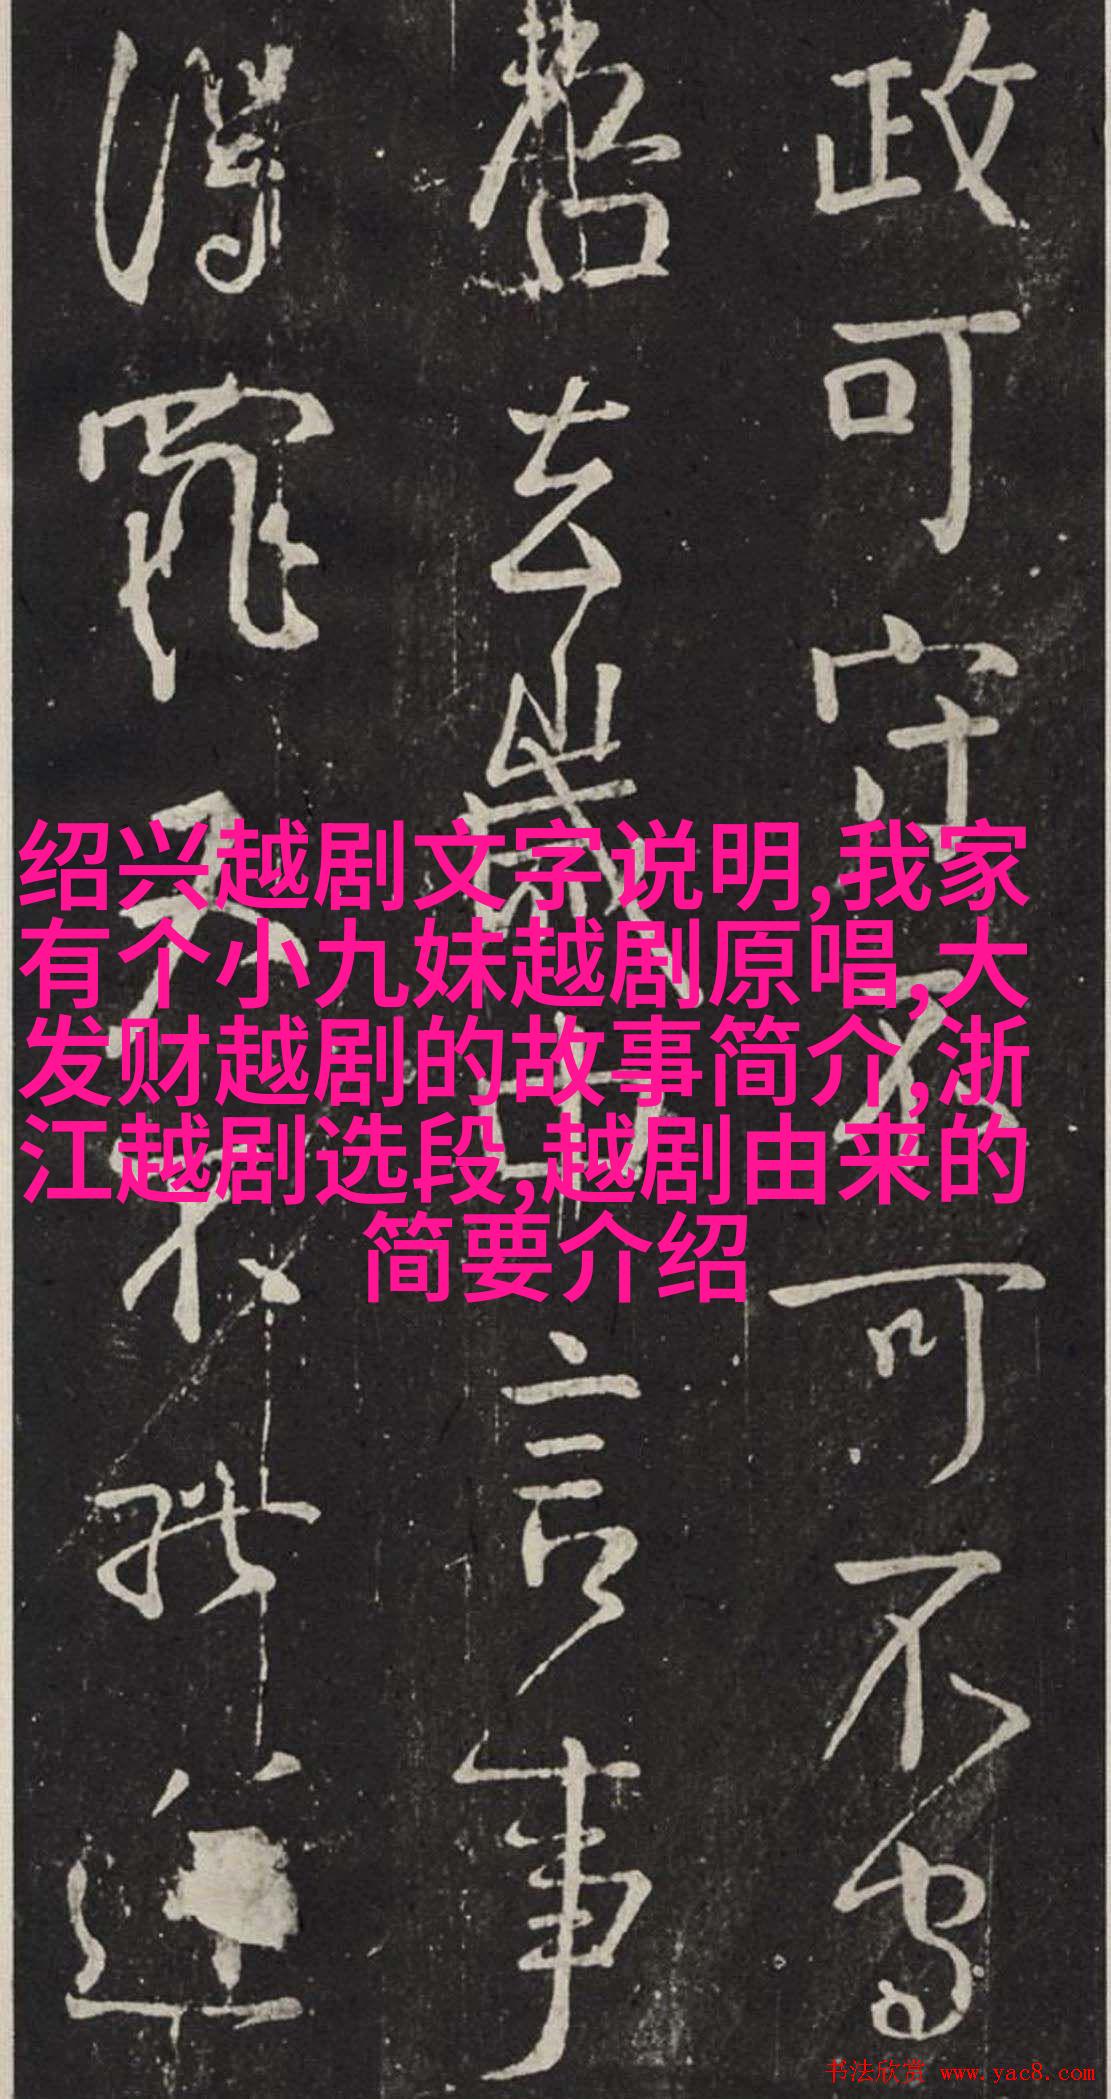 政可守不可不守
哲去歲中言事
得罪又不
绍兴越剧文字说明,我家
有个小九妹越剧原唱,大
发财越剧的故事简介,浙
江越剧选段,越剧由来的
简要介绍
书法欣赏 www.yac8.com